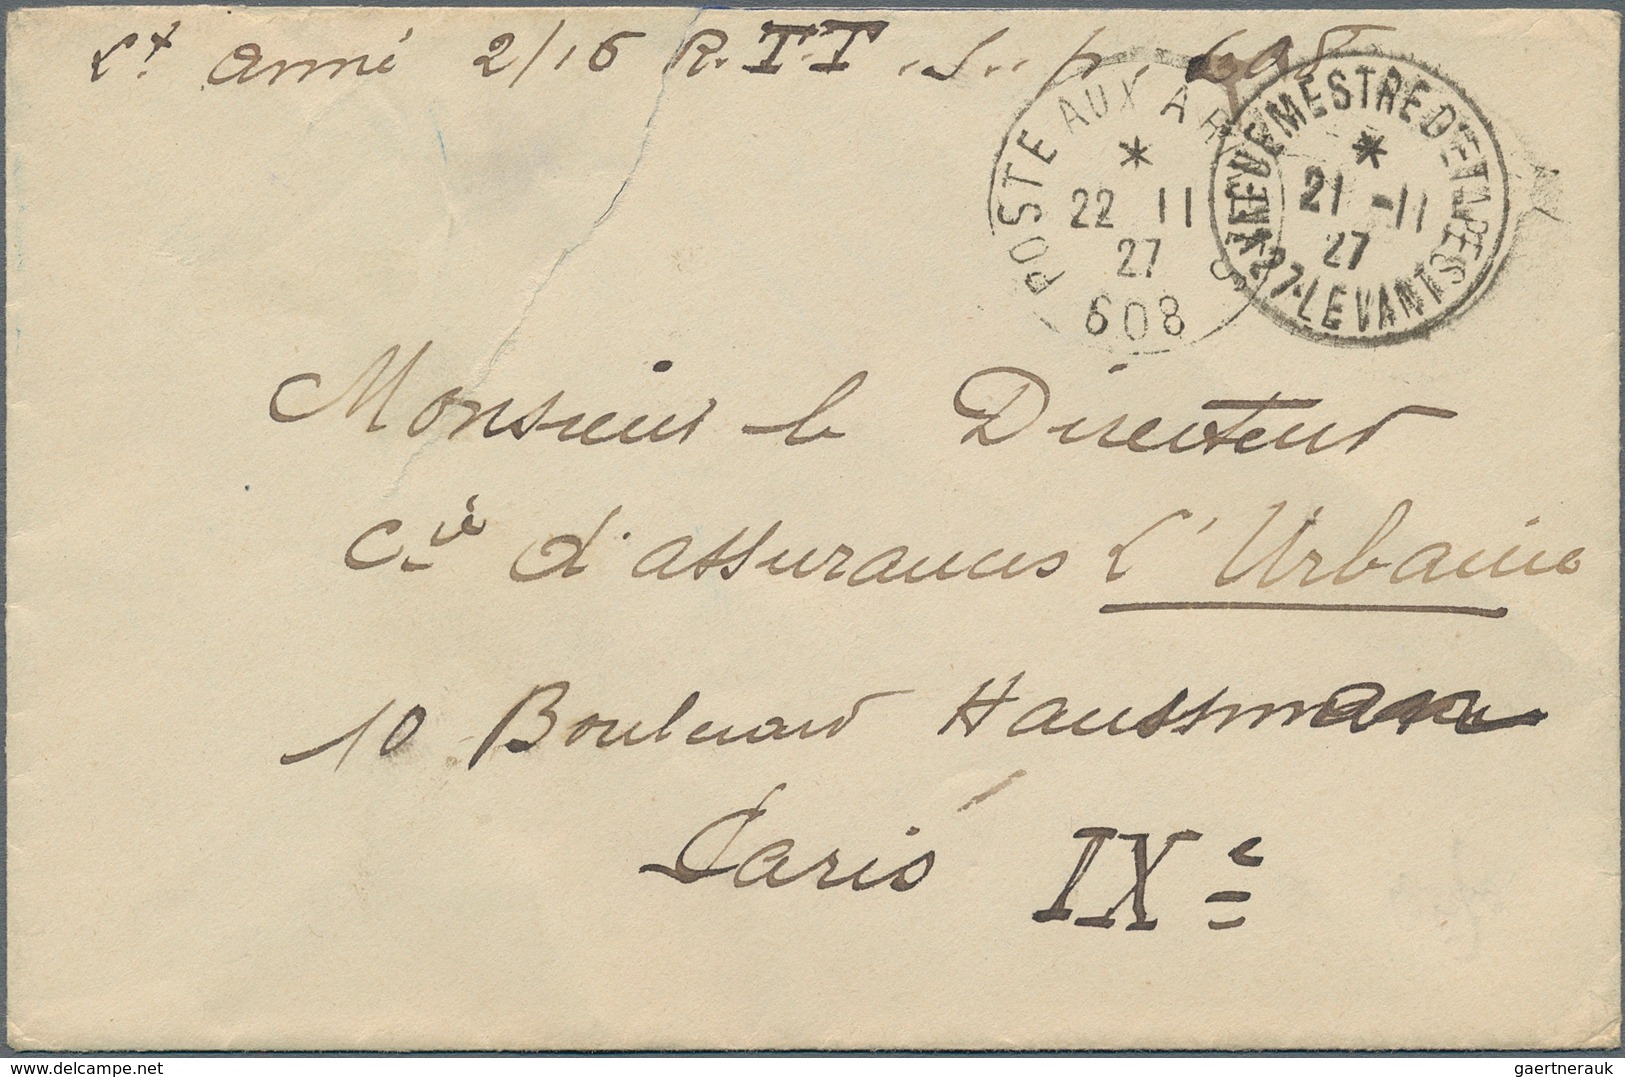 Lt Armé 2/16 R.T.T. S. p. 608
POSTE AUX AR
*
22 11
27
608
VAGUEMESTRE D'ETAPES
*
21 -11
27
27. LEVANT
Monsieur le Directeur
Cie d'assurances L'Urbaine
10 Boulevard Haussmann
Paris IXe
delcampe.net
gaertnerauk